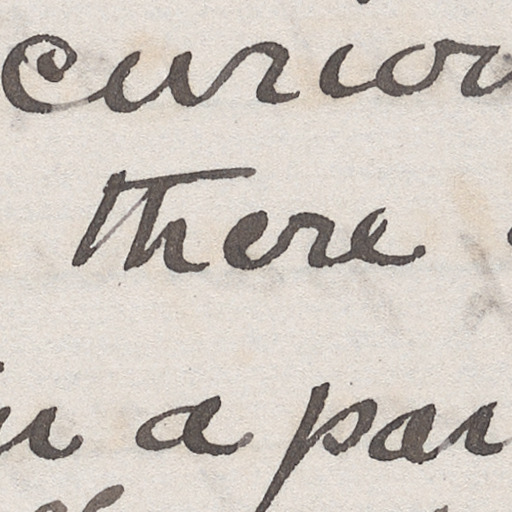 curiou
there
in a par